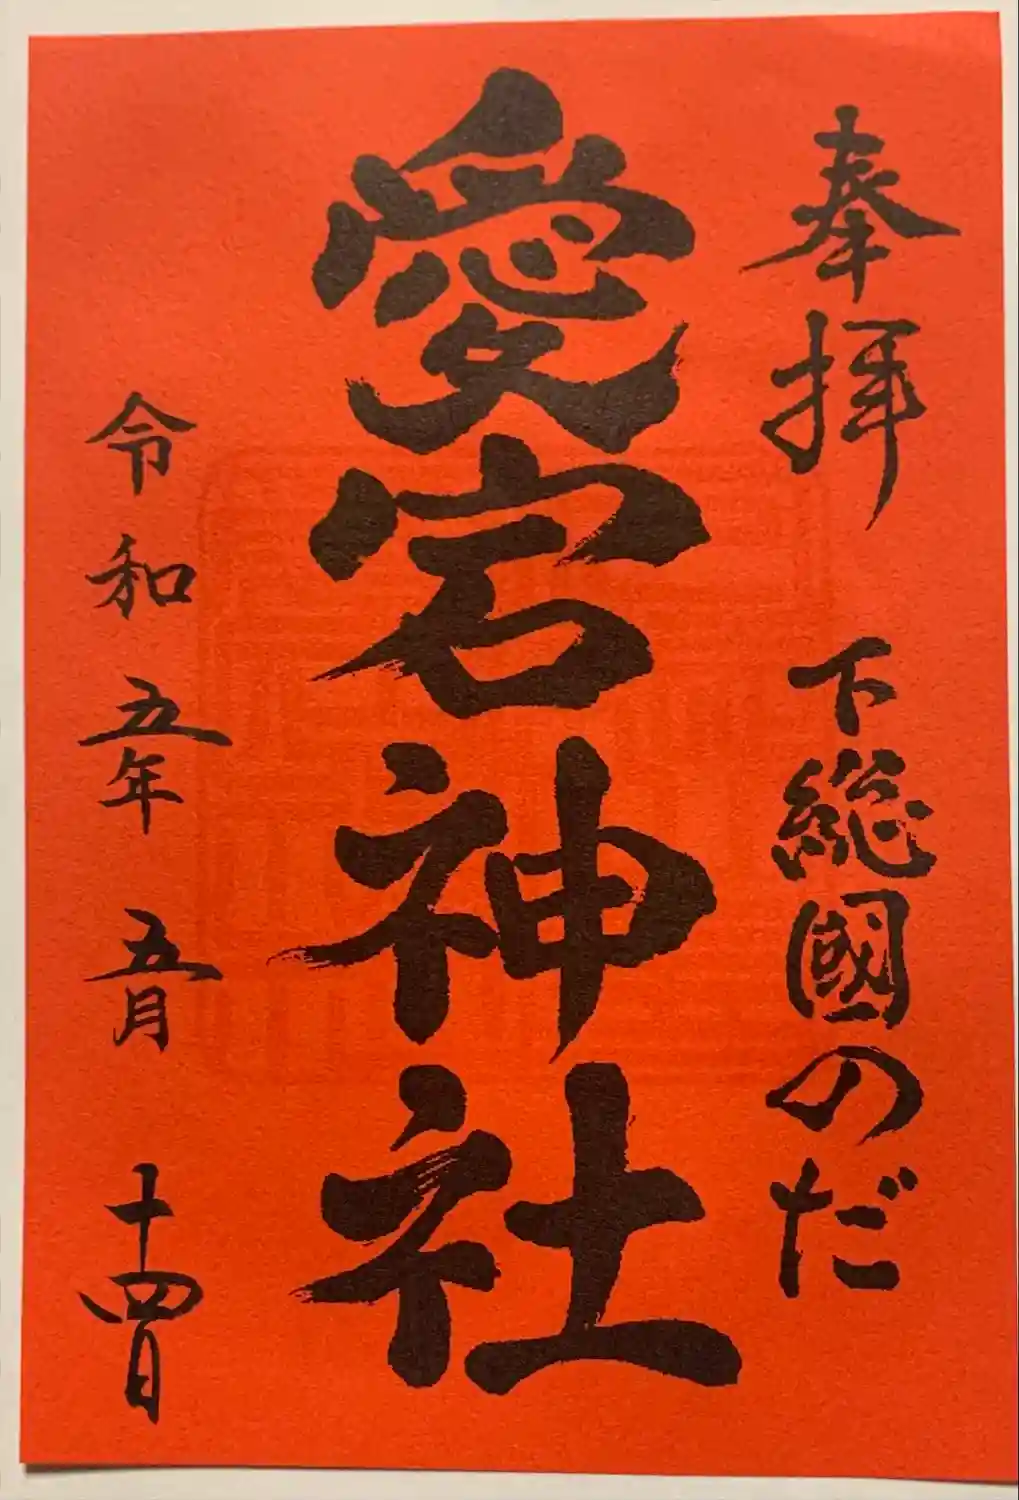 奉拝 下総國のだ
愛宕神社
令和五年五月十四日